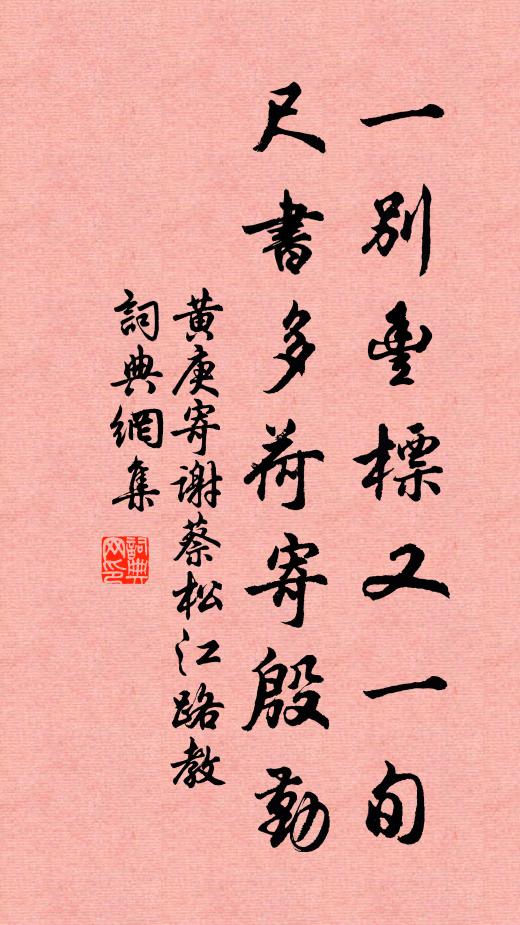 一别豐標又一旬
尺書多荷寄殷勤
黄庚寄谢蔡松江路教
詞典網集
詞典网印